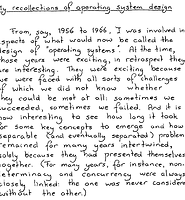 My recollections of operating system design
From, say, 1956 to 1966, I was involved in
aspects of what would now be called the
design of "operating systems". At the time,
those years were exciting, in retrospect they
are interesting. They were exciting because
we were faced with all sorts of challenges
of which we did not know whether
they could be met at all: sometimes we
succeeded, sometimes we failed. And it is
now interesting to see how long it took
for some key concepts to emerge and how
separable (and eventually separated) problems
remained for many years intertwined,
solely because they had presented themselves
together. (For many years, for instance, non-
determinacy and concurrency were always
closely linked: the one was never considered
without the other.)